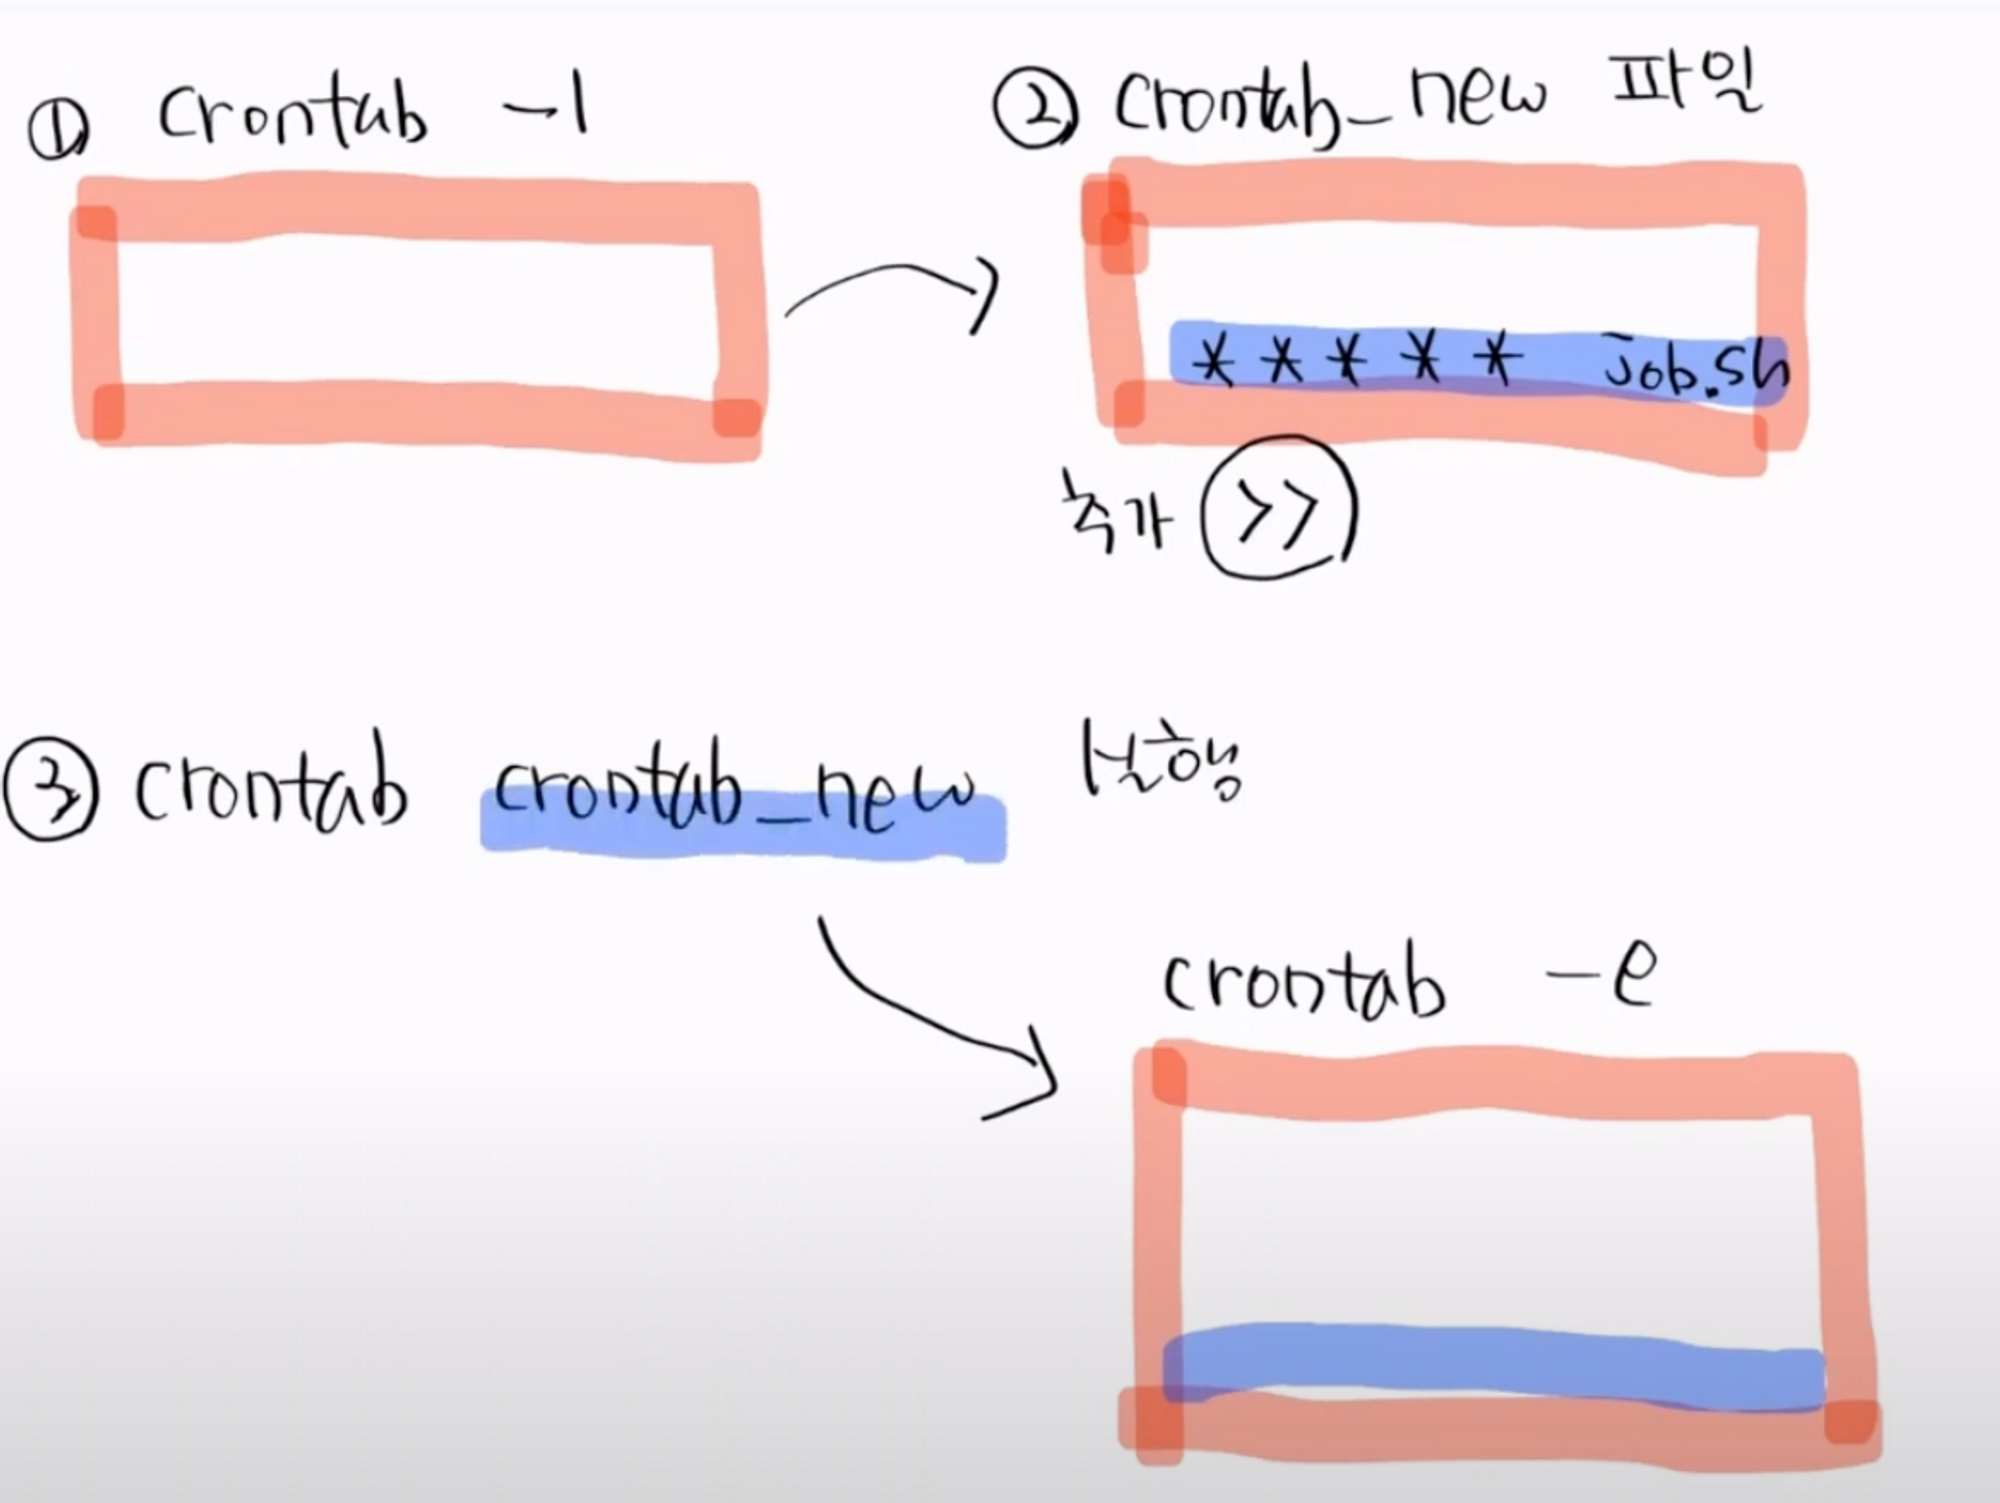 ① crontab -l
② crontab_new 파일
* * * * * job.sh
추가 >>
③ crontab crontab_new 실행
crontab -e